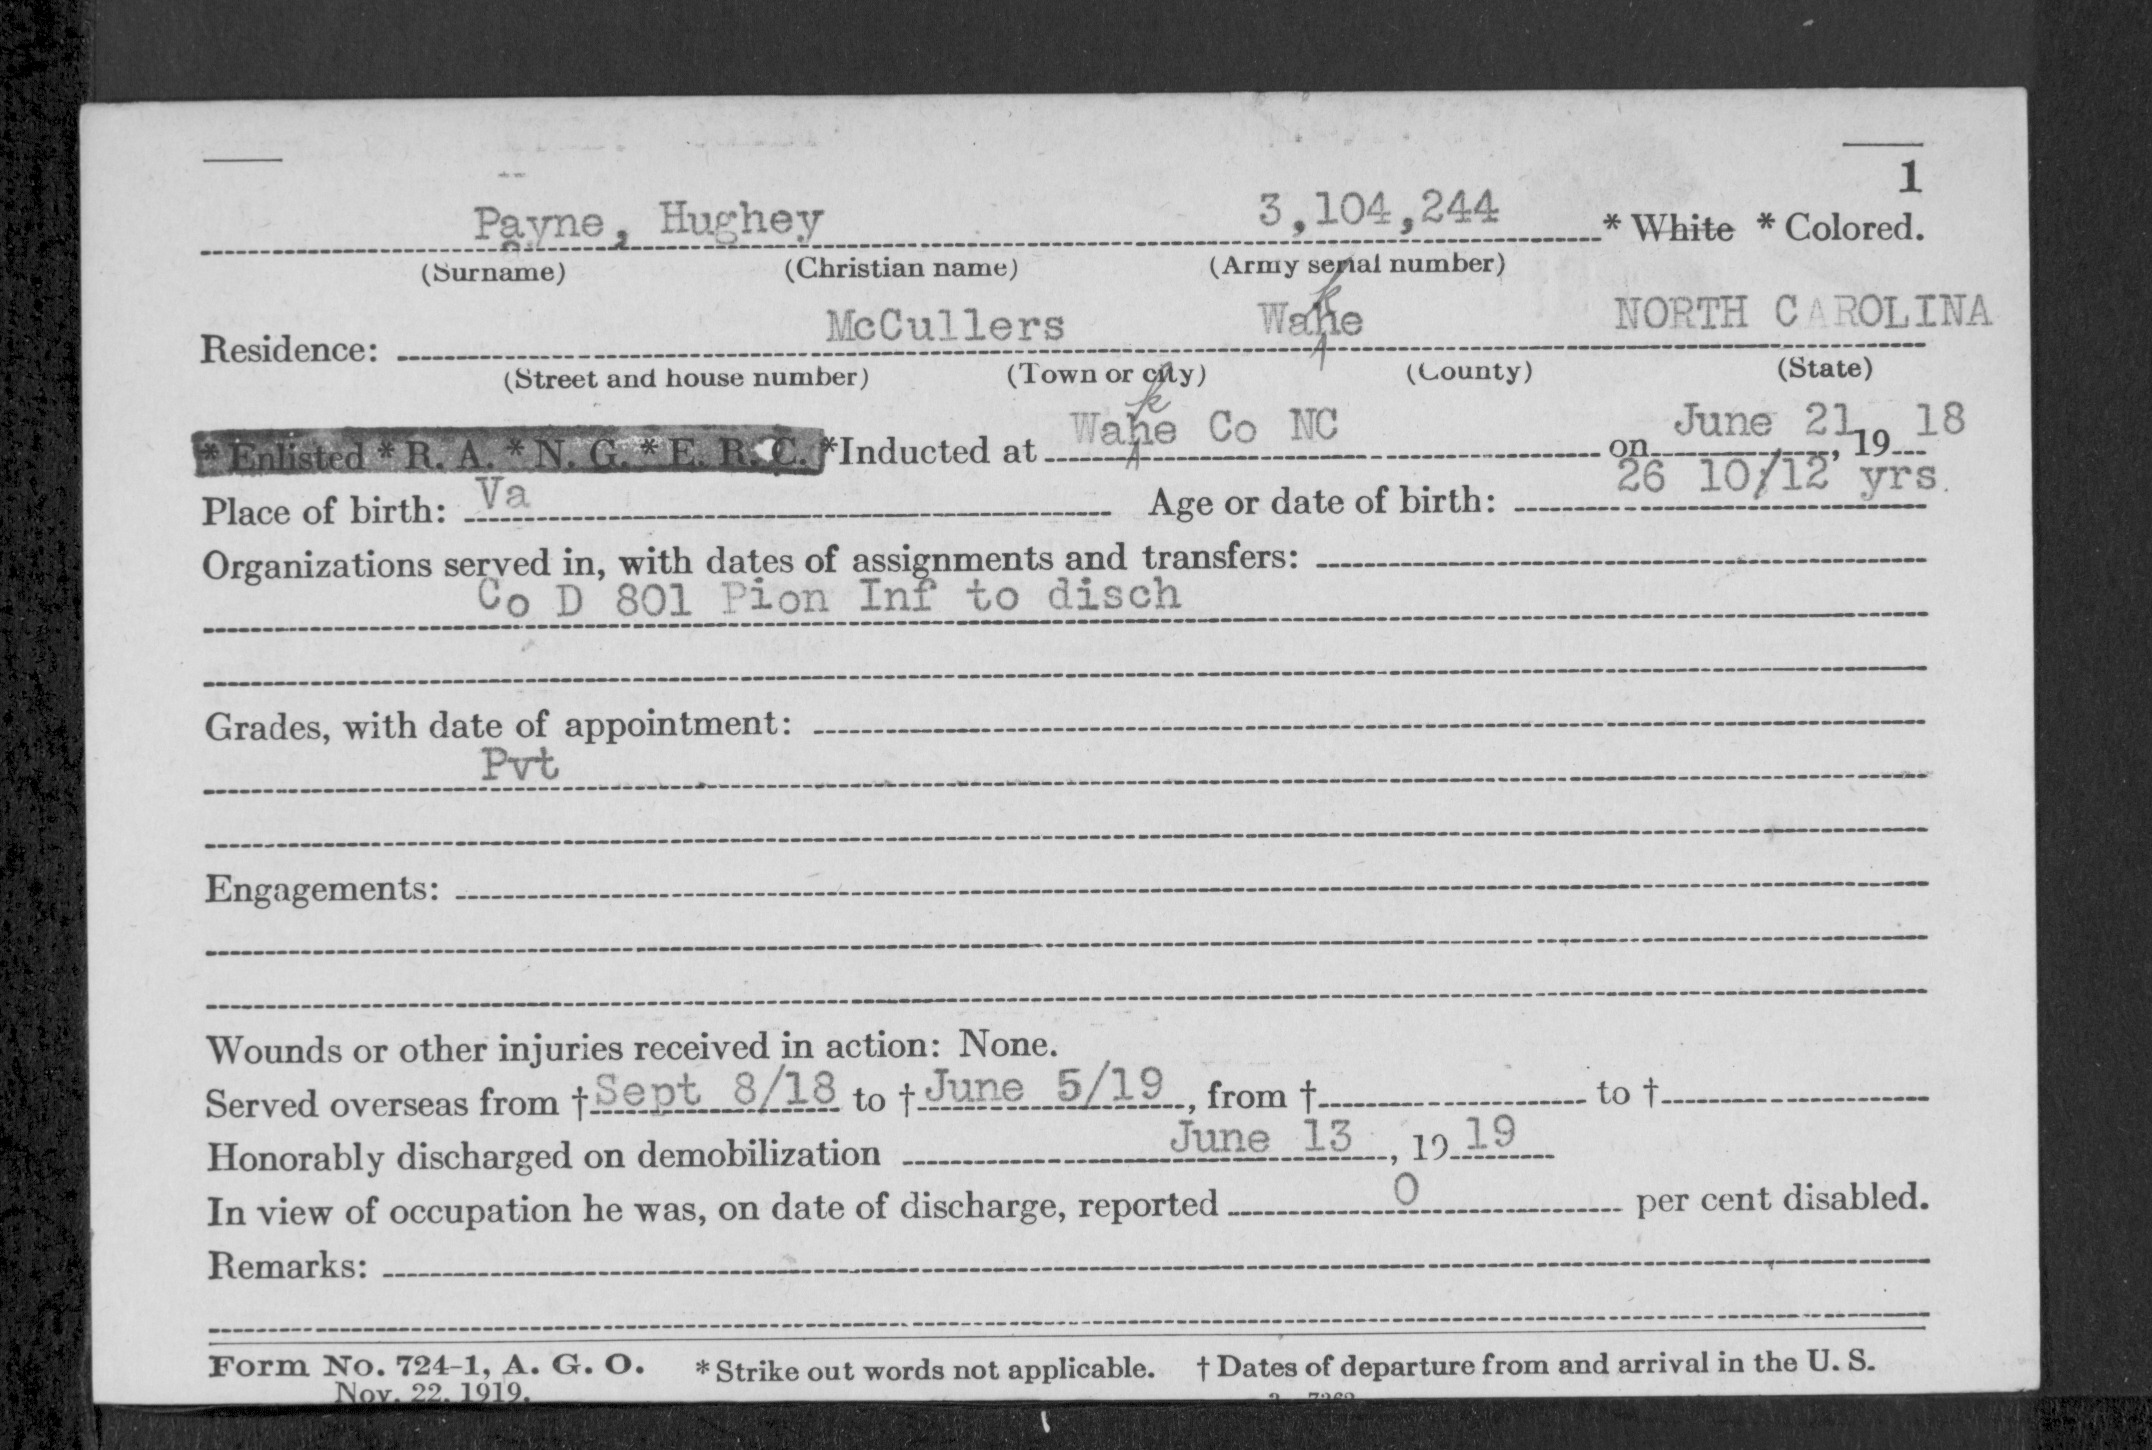 1
Payne, Hughey 3,104,244 * White * Colored.
(Surname) (Christian name) (Army serial number)
Residence: McCullers Wake NORTH CAROLINA
(Street and house number) (Town or city) (County) (State)
* Enlisted * R. A. * N. G. * E. R. C. *Inducted at Wake Co NC on June 21, 19 18
Place of birth: Va Age or date of birth: 26 10/12 yrs.
Organizations served in, with dates of assignments and transfers:
Co D 801 Pion Inf to disch
Grades, with date of appointment:
Pvt
Engagements:
Wounds or other injuries received in action: None.
Served overseas from † Sept 8/18 to † June 5/19, from † to †
Honorably discharged on demobilization June 13, 19 19
In view of occupation he was, on date of discharge, reported 0 per cent disabled.
Remarks:
Form No. 724-1, A. G. O. * Strike out words not applicable. † Dates of departure from and arrival in the U. S.
Nov. 22, 1919.